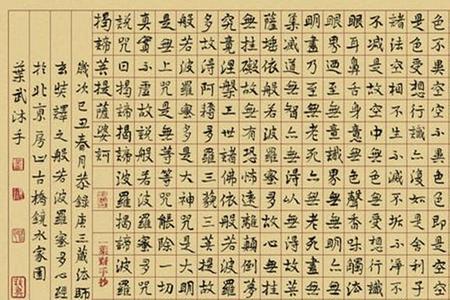 色不異空空不異色色即是空空
是色受想行識亦復如是舍利子
諸法空相不生不滅不垢不淨不
不減是故空中無色無受想行
眼耳鼻舌身意無色聲香味觸法
眼界乃至無意識界無無明亦無
明盡乃至無老死亦無老死盡
集滅道無智亦無得以無所得故
薩埵依般若波羅蜜多故心無
無挂礙故無有恐怖遠離顛倒夢
究竟涅槃三世諸佛依般若波羅
多故得阿耨多羅三藐三菩提故
般若波羅蜜多是大神咒是大
是無上咒是無等等咒能除一切
真實不虛故說般若波羅蜜多咒
說咒曰揭諦揭諦波羅揭諦波羅
揭諦菩提薩婆訶
手抄
歲次己丑春月恭錄唐三藏法師
玄奘譯之般若波羅蜜多心經
於北京房山古橋鏡水家園
葉武沐手